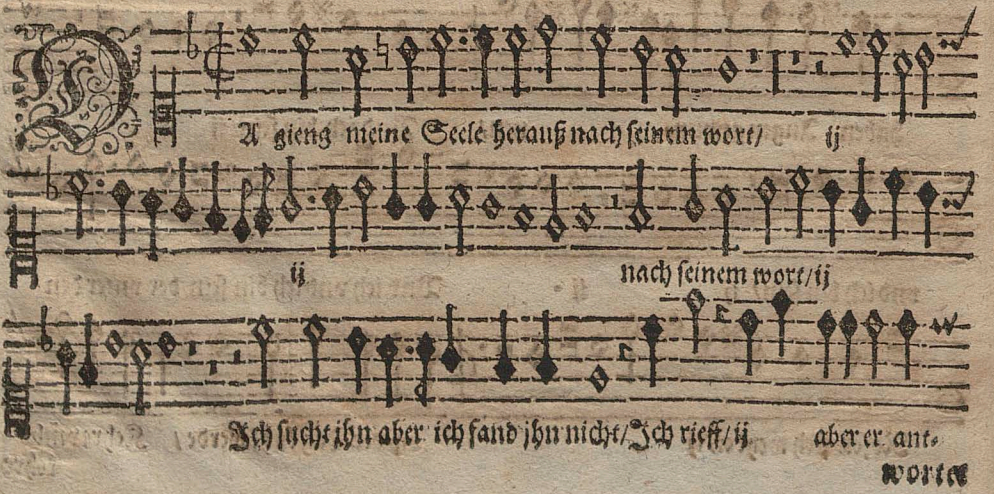 DA gieng meine Seele herauß nach seinem wort/ ij
ij nach seinem wort/ij
Ich sucht jhn aber ich fand jhn nicht/Ich rieff/ij aber er ant-
wortet